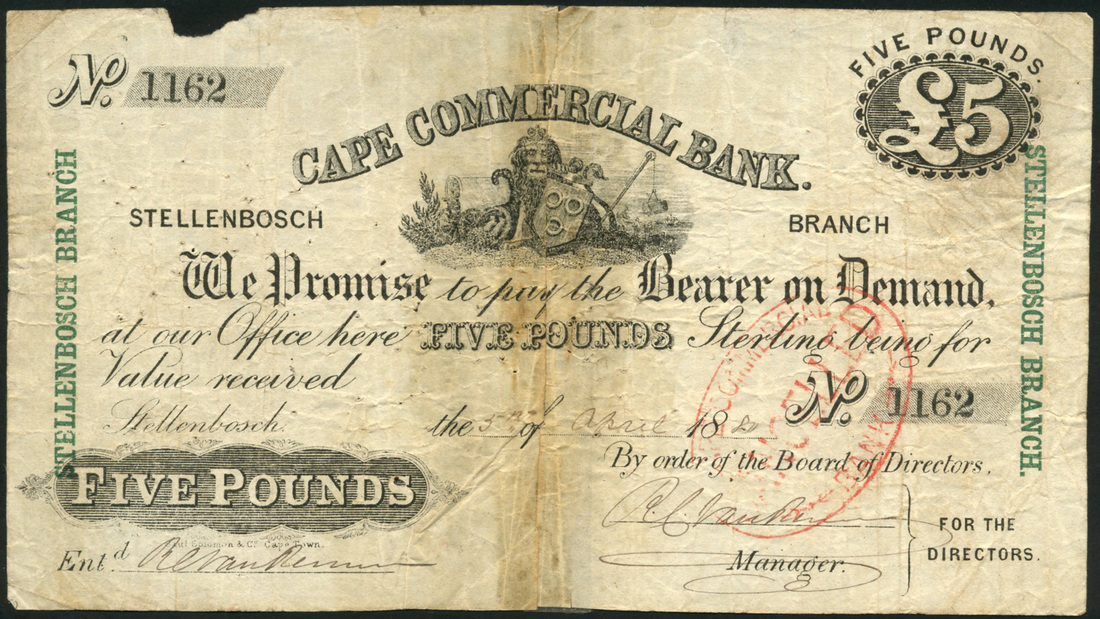 FIVE POUNDS.
£5
No. 1162
CAPE COMMERCIAL BANK.
STELLENBOSCH BRANCH
STELLENBOSCH BRANCH
STELLENBOSCH BRANCH.
We Promise to pay the Bearer on Demand,
at our Office here FIVE POUNDS Sterling being for
Value received
No. 1162
Stellenbosch. the 5th of April 18
COMMERCIAL
CANCELLED
BANK
By order of the Board of Directors,
FIVE POUNDS
Saul Solomon & Co. Cape Town.
Entd.
Manager.
FOR THE
DIRECTORS.